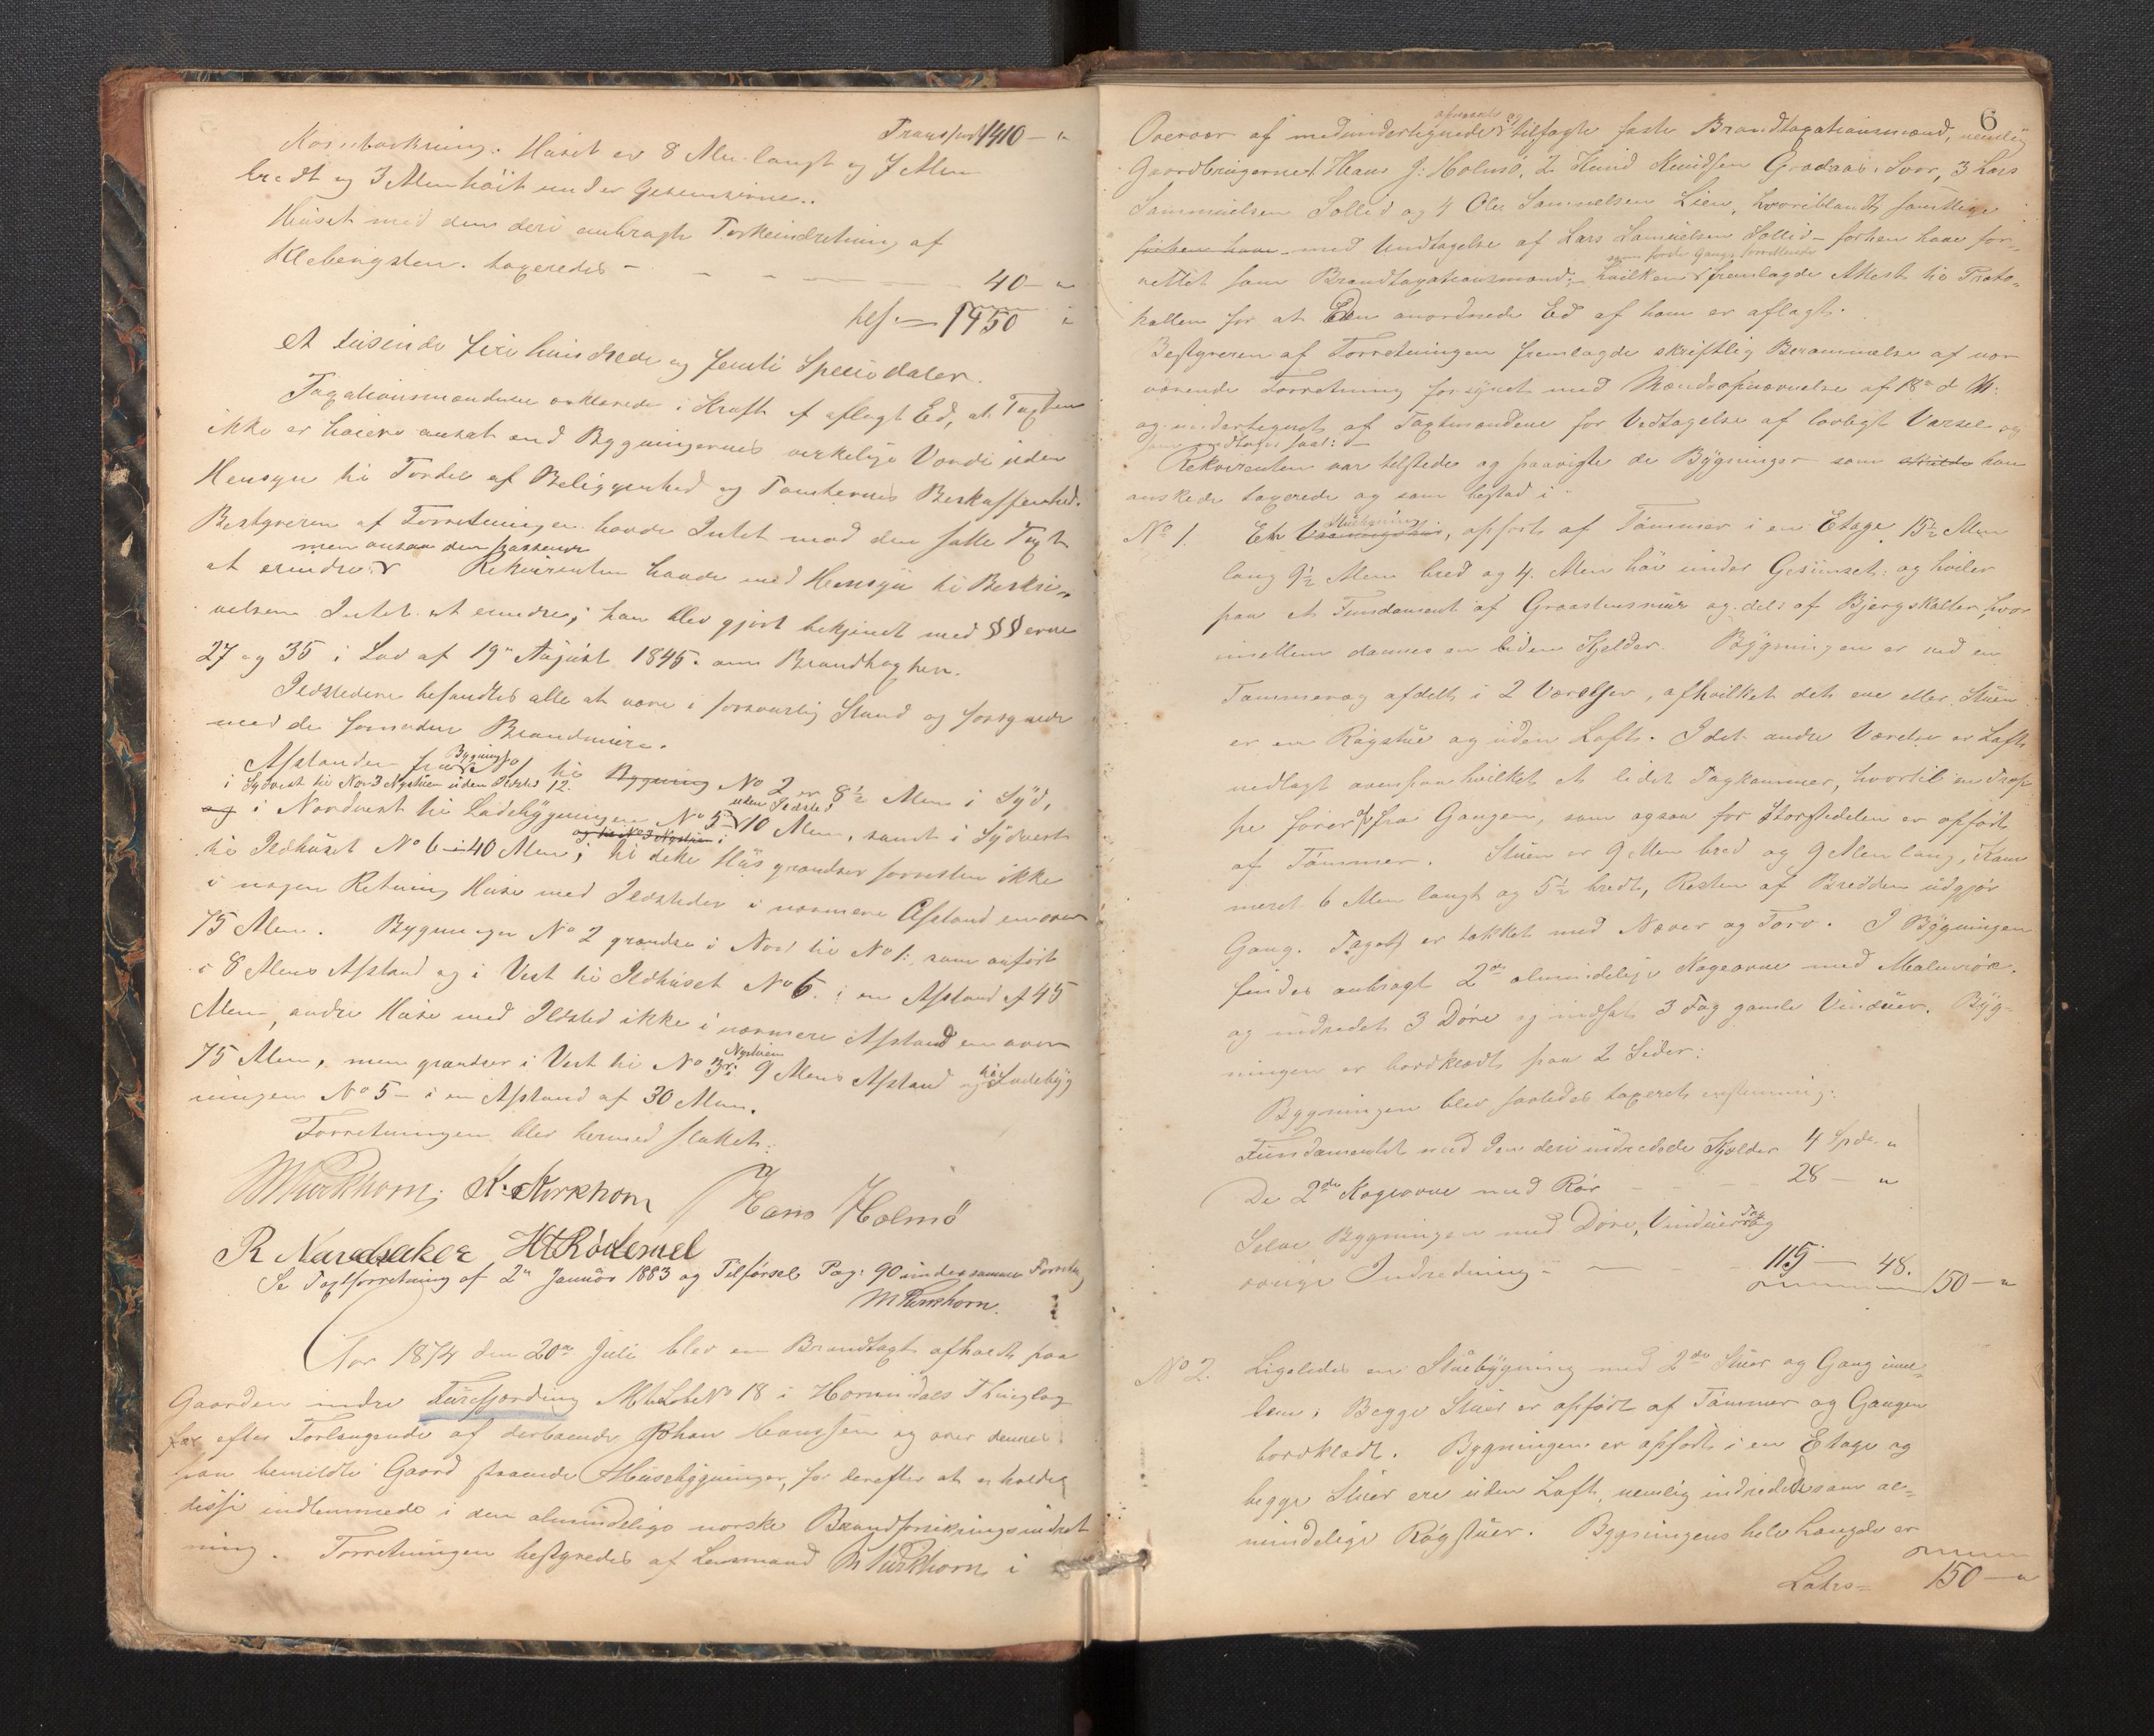 Transport 1410 — "
Korntørkning. Huset er 8 Alen langt og 7 Alen
bredt og 3 Alen høit under Gesemserne..
Huset med den deri anbragte Tørkeindretning af
Klebergsten taxeredes — 40 — "
1450
Et tusinde fire hundrede og femti Speciedaler.
Taxationsmændene erklærede i Kraft af aflagt Ed, at Taxten
ikke er høiere ansat end Bygningernes virkelige Værdi uden
Hensyn til Fordel af Beliggenhed og Tomternes Beskaffenhed.
Bestyreren af Forretningen havde Intet mod den satte Taxt
men ansaa den passende
at erindre Rekvirenten havde med Hensyn til Beskri-
velsen Intet at erindre; han blev gjort bekjendt med §§erne
27 og 35 i Lov af 19de August 1845. om Brandtaxten.
Ildstederne befandtes alle at være i forsvarlig Stand og forsynede
med de fornødne Brandmure.
Afstanden fra Bygning No 1 til Bygning No 2 er 8½ Alen i Syd,
i Sydvest til No 3 Nystuen uden Ildsted 12.
og i Nordvest til Ladebygningen No 5 uden Ildsted 10 Alen, samt i Sydvest
og til No 3 Nystuen i
til Ildhuset No 6 i 40 Alen; til dette Hus grændser forresten ikke
i nogen Retning Huse med Ildsteder i nærmere Afstand end over
75 Alen. Bygningen No 2 grændser i Nord til No 1. som anført
i 8 Alens Afstand og i Vest til Ildhuset No 6. i en Afstand af 45
Alen, andre Huse med Ildsted ikke i nærmere Afstand end over
75 Alen, men grændser i Vest til No 3 Nystuen i 9 Alens Afstand og til Ladebyg
ningen No 5 — i en Afstand af 30 Alen.
Forretningen blev hermed sluttet.
M Kirkhorn. K. Kirkhorn Hans Holmö
R Navelsaker
Se Taxtforretning af 2den Januar 1883 og Tilførsel Pag: 90 under samme Forretng
M Kirkhorn.
Aar 1874 den 20de Juli blev en Brandtaxt afholdt paa
Gaarden indre Furefjording Mt. Løbe No 18 i Hornindals Thinglag
efter Forlangende af dertoende Johan Hanssen og over dennes
paa bemeldte Gaard staaende Husebygninger, for derefter at erholde
disse indlemmede i den almindelige norske Brandforsikringsindret
ning. Forretningen bestyredes af Lensmand M Kirkhorn i
6
Overvær af medundertegnede opnævnte og tilsagte faste Brandtaxationsmænd, nemlig
Gaardbrugerne 1 Hans J: Holmö, 2 Knud Knudsen Grodaas, 3 Lars
Sammuelsen Sollid og 4 Ole Samuelsen Lien, hvoriblandt samtlige
forhen have med Undtagelse af Lars Samuelsen Sollid — forhen have for-
som første Gang forrettende
rettet som Brandtaxationsmænd; hvilken fremlagde Attest til Proto-
kollen for at Den anordnede Ed af ham er aflagt.
Bestyreren af Forretningen fremlagde skriftlig Berammelse af nær
værende Forretning forsynet med Mændsopnævnelse af 18de d M:
og undertegnet af Taxtmændene for Vedtagelse af lovligt Varsel og
Rekvirenten var tilstede og paaviste de Bygninger som han
ønskede taxerede og som bestod i
No 1. En Stuebygning, opført af Tømmer i en Etage, 15½ Alen
lang 9½ Alen bred og 4. Alen høi under Gesimset og hviler
paa et Fundament af Graastensmur og dels af Bjergskalter, hvor
imellem dannes en liden Kjelder. Bygningen er ved en
Tømmervæg afdelt i 2 Værelser, af hvilket det ene eller Stuen
er en Røgstue og uden Loft. I det andre Værelse er Loft
nedlagt ovenpaa hvilket et lidet Tagkammer, hvortil en Trap
pe fører op fra Gangen, som ogsaa for Størstedelen er opført
af Tømmer. Stuen er 9 Alen bred og 9 Alen lang, Kam
meret 6 Alen langt og 5½ bredt, Resten af Bredden udgjør
Gang. Taget er tækket med Næver og Torv. I Bygningen
findes anbragt 2de almindelige Kogeovne med Malmrør,
og indredet 3 Døre og indsat 3 Fag gamle Vinduer. Byg-
ningen er bordklædt paa 2 Sider:
Bygningen blev saaledes taxeret
Fundamentet med den deri indredede Kjelder 4 Spd "
De 2de Kogeovne med Rør — 28 — "
Selve Bygningen med Døre, Vinduer Tag og
øvrige Indredning — 115 — 48.
150 — "
No 2. Ligeledes en Stuebygning med 2de Stuer og Gang imel-
lem; Begge Stuer er opført af Tømmer og Gangen
bordklædt. Bygningen er opført i en Etage og
begge Stuer ere uden Loft, nemlig indredede som al-
mindelige Røgstuer. Bygningens hele Længde er
Latus 150 — "